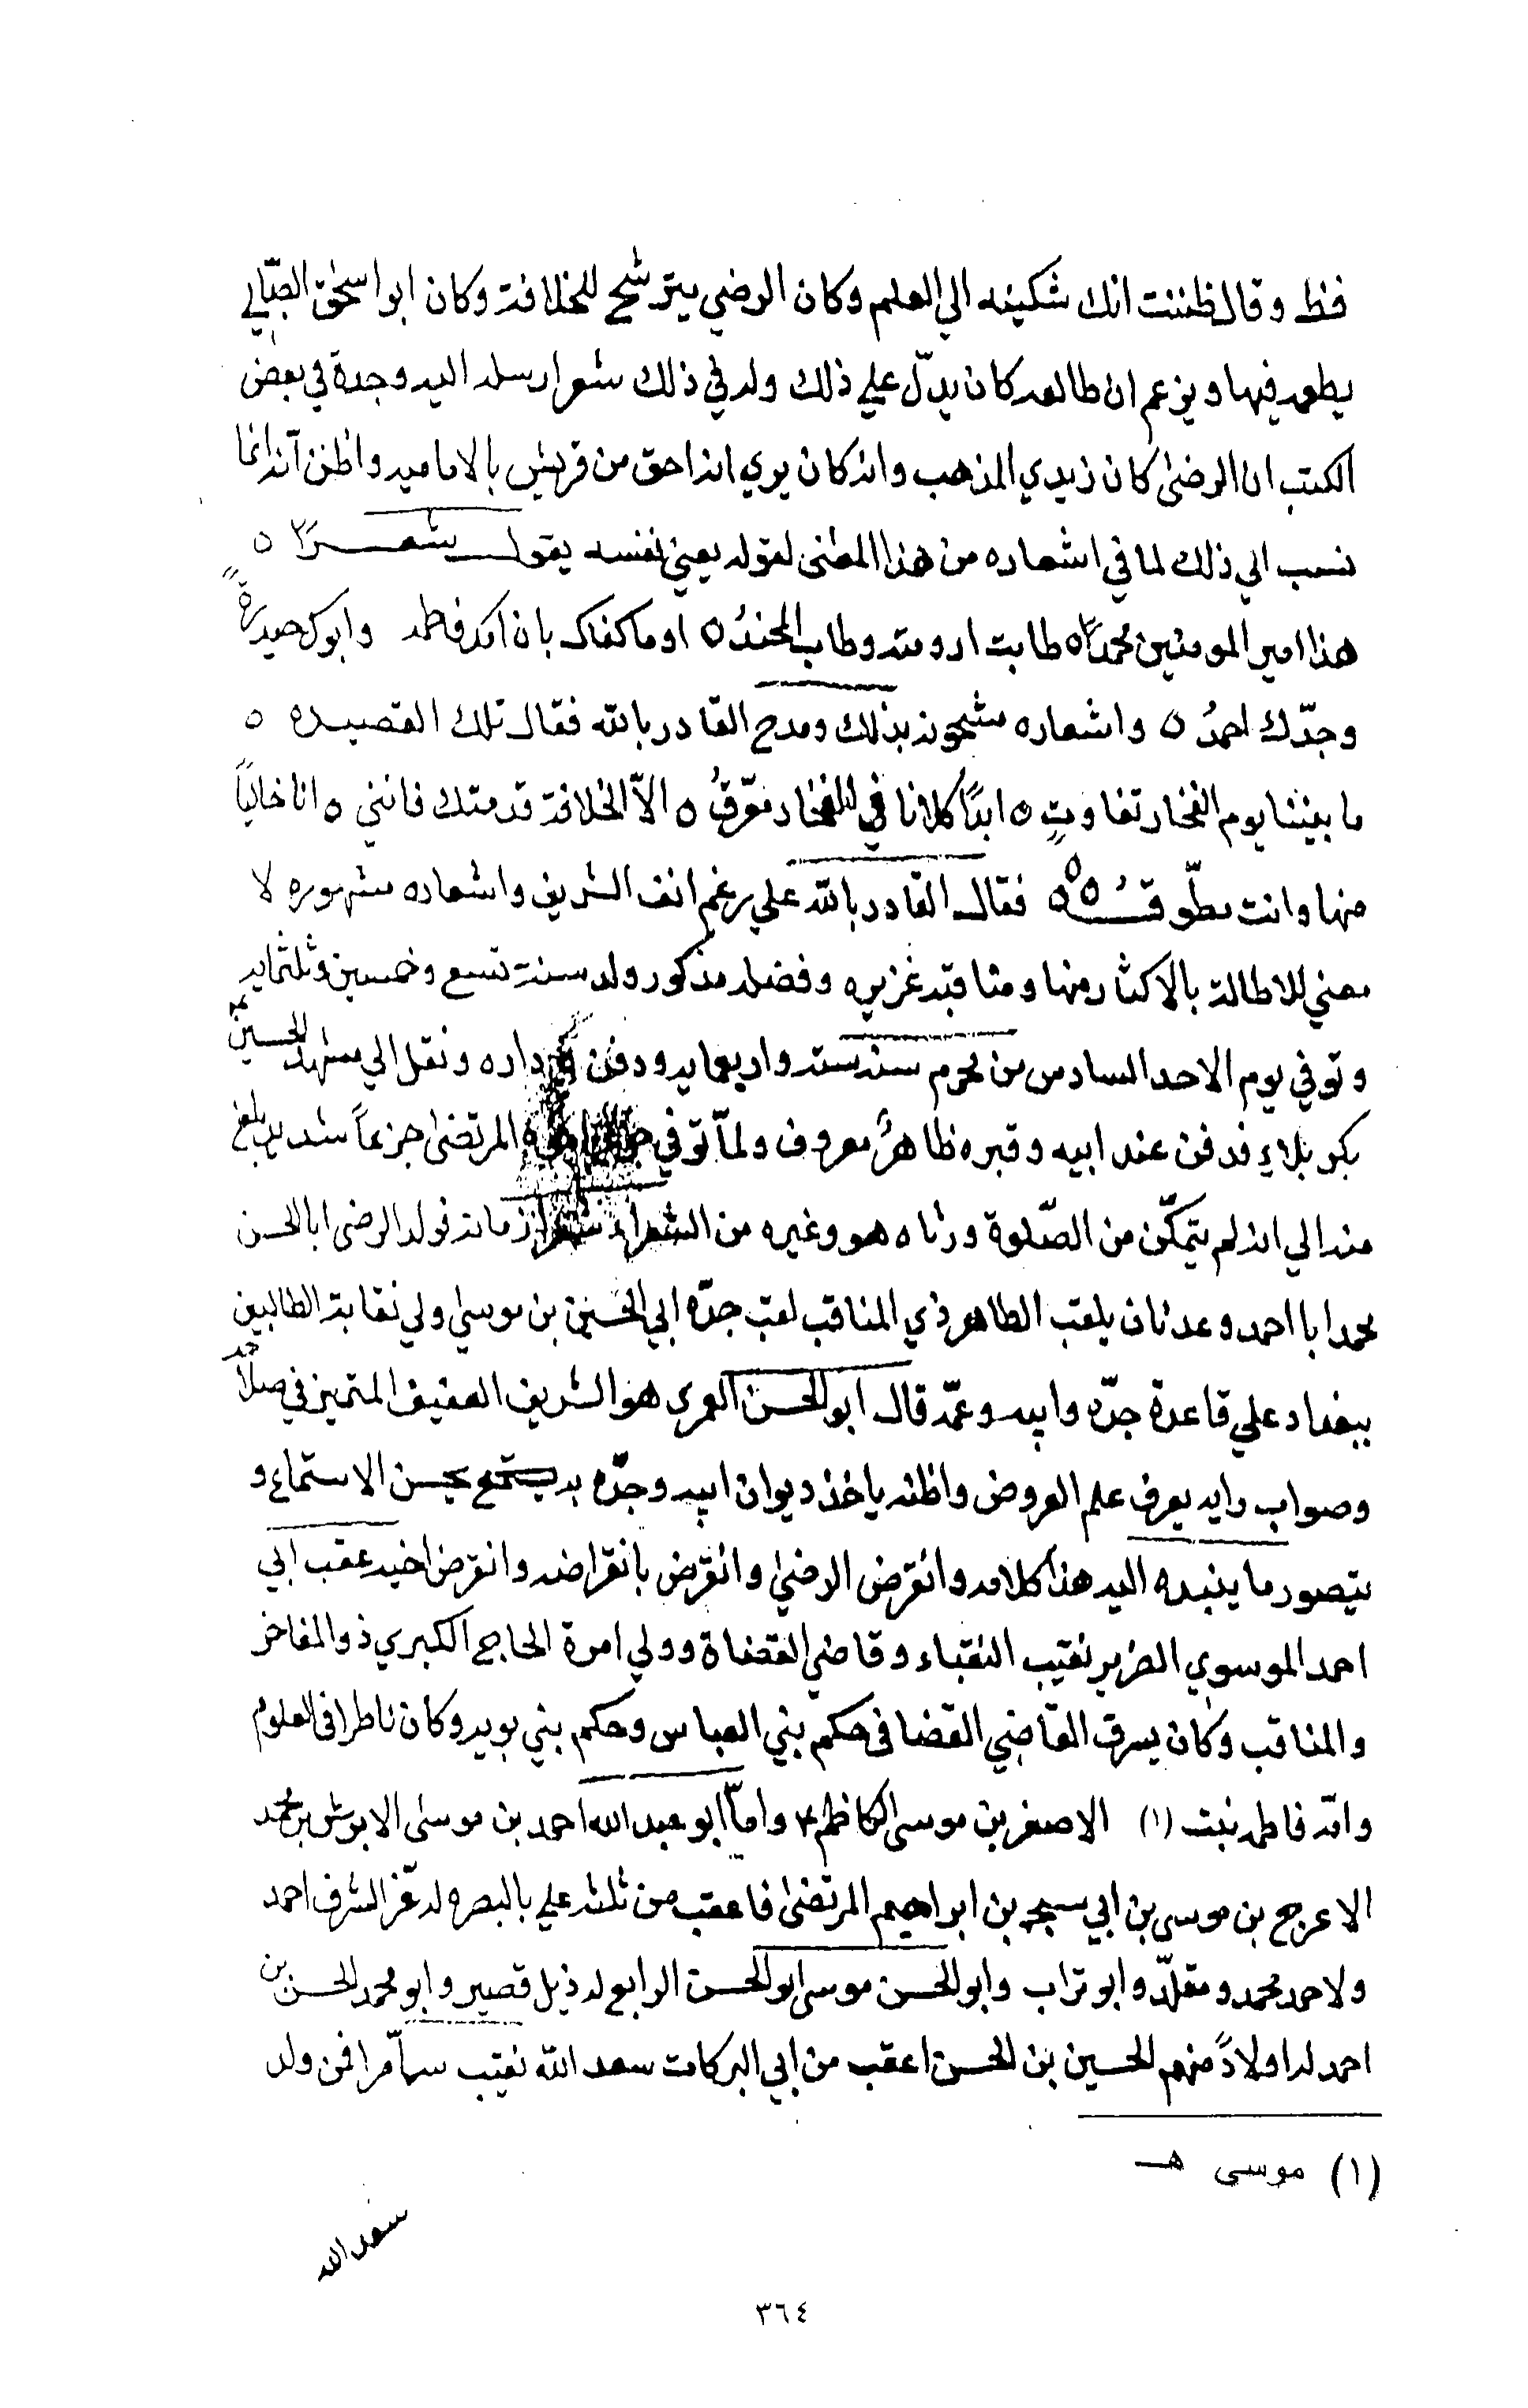 فقط وقال ظننت انك شكيته الي المعلم وكان الرضي يترشح للخلافة وكان ابواسحق الصّابي
يطمعه فيها ويزعم ان طالعه كان يدلّ علي ذلك وله في ذلك شعر ارسله اليه وجدة في بعض
الكتب ان الرضىٰ كان زيدي المذهب وانه كان يري انه احق من قريش بالاماميه واظن انه انما
نسب الي ذلك لما في اشعاره من هذا المعنى لقوله يعني نفسه يقول شعرًا ٥
هذا امير المومنين محمدًا ٥ طابت ارومته وطاب المحتدُ ٥ اوما كفاك بان امك فاطمه وابوك حيدرةً
وجدّك احمدُ ٥ واشعاره مشحونه بذلك ومدح القادر بالله فقال تلك القصيده ٥
ما بيننا يوم الفخار تفاوتٍ ٥ ابدًا كلانا في الفخار معرّقُ ٥ الاّ الخلافة قدمتك فانني ٥ انا خاليًا
منها وانت مطّوقُ ٥٥٥ فقال القادر بالله علي رغم انف الشريف واشعاره مشهوره لا
معني للاطالة بالاكثار منها ومناقبه غزيره وفضله مذكور ولد سنة تسع وخمسين وثلثمايه
وتوفي يوم الاحد السادس من محرم سنه سته واربعمايه ودفن في داره ونقل الي مشهد الحسين ع
بكربلاءِ فدفن عند ابيه وقبره ظاهرٌ معروف ولمّا توفي المرتضىٰ جزعاً شديد بلغ
منه الي انه لم يتمكّن من الصّلوة ورثاه هو وغيره من الشعراء زمانه فولد الرضى ابا الحسن
محمد ابا احمد وعدنان يلقب الطاهر ذي المناقب لقب جدّه ابي الحسين بن موسىٰ ولي نقابة الطالبين
ببغداد علي قاعدة جدّه وابيه وعمّه قال ابو الحسن العمري هو الشريف العفيف المتميز في صلاحه
وصواب رايه يعرف علم العروض واظنه ياخذ ديوان ابيه وجدّه به يستمع بحسن الاستماع و
يتصور ما ينبده اليه هذا كلامه وانقرض الرضىٰ وانقرض بانقراضه وانقرض اخيه عقب ابي
احمد الموسوي الضرير نقيب النقباء وقاضي القضاة وولي امرة الحاج الكبري ذو المفاخر
والمناقب وكان يسرق القاضي القضا في حكم بني العباس وحكم بني بويه وكان ناطرا فى العلوم
وامّه فاطمه بنت (١) الاصغر بن موسى الكاظم ع وامّا ابو عبد الله احمد بن موسى الابرش بن محمد
الاعرج بن موسى بن ابي سبحه بن ابراهيم المرتضىٰ فاعقب من ثلثه علي بالبصره له عّز الشرف احمد
ولاحمد محمد ومقلّد وابو تراب وابو الحسن موسى ابو الحسن الرابع له ذيل قصير وابو محمد الحسن بن
احمد له اولادً منهم الحسين بن الحسن اعقب من ابي البركات سعد الله نقيب سامّرا فمن ولد
(١) موسى هـ
سعد الله
٣٦٤